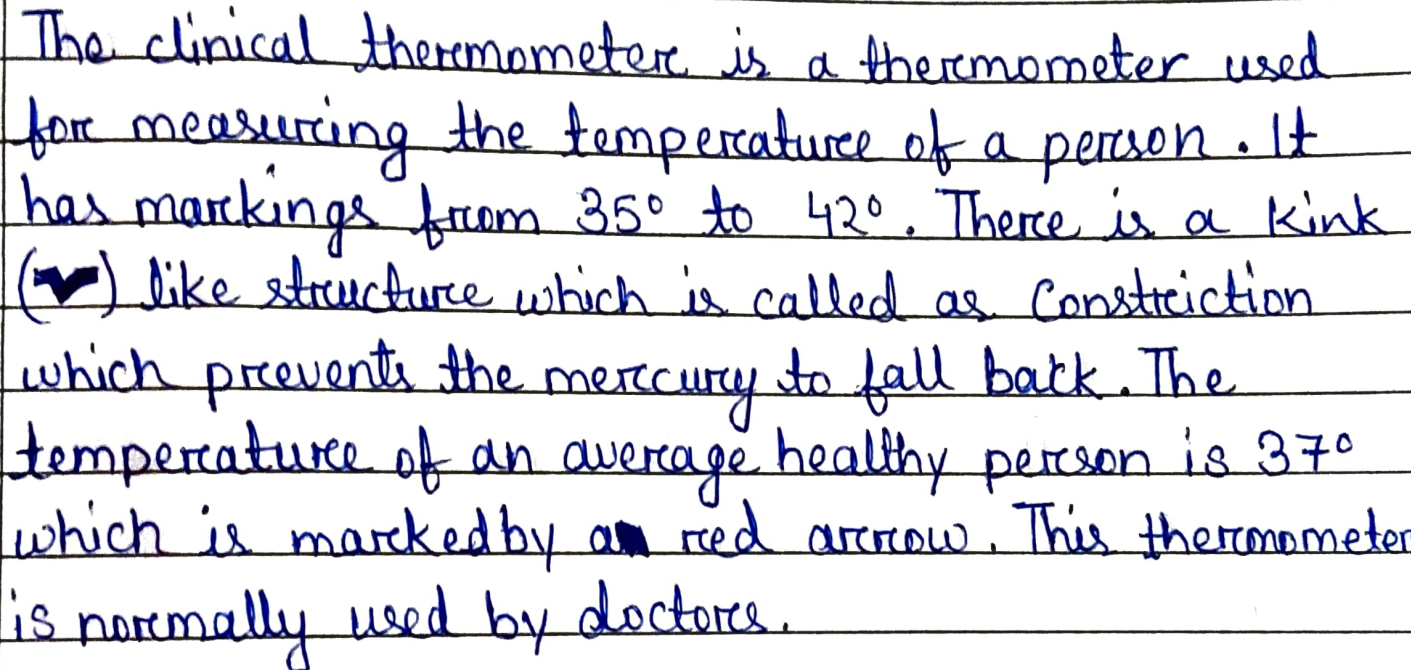 The clinical thermometer is a thermometer used
for measuring the temperature of a person. It
has markings from 35° to 42°. There is a kink
(✓) like structure which is called as Constriction
which prevents the mercury to fall back. The
temperature of an average healthy person is 37°
which is marked by a red arrow. This thermometer
is normally used by doctors.